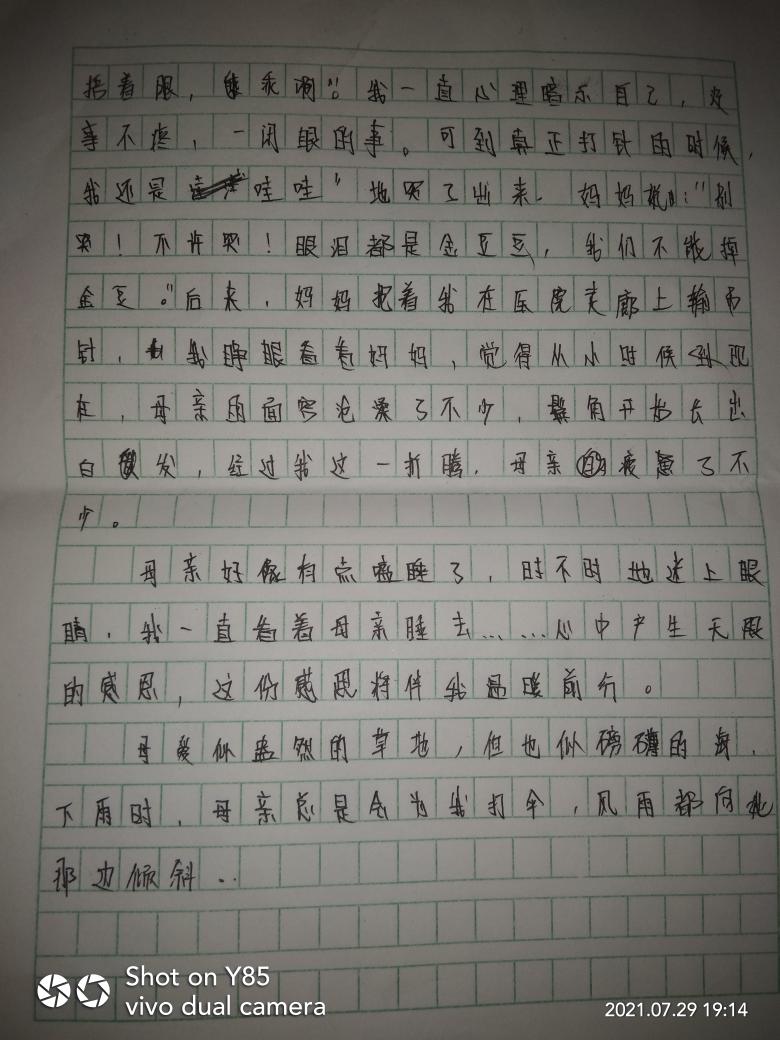 捂着眼，乖啊！"我一直心理暗示自己，没
事不疼，一闭眼的事。可到真正打针的时候，
我还是"哇哇"地哭了出来。妈妈说："别
哭！不许哭！眼泪都是金豆豆，我们不能掉
金豆。"后来，妈妈抱着我在医院走廊上输吊
针，我睁眼看着妈妈，觉得从小时候到现
在，母亲的面容沧桑了不少，鬓角开始长出
白发，经过我这一折腾，母亲疲惫了不
少。
母亲好像有点瞌睡了，时不时地迷上眼
睛，我一直看着母亲睡去……心中产生无限
的感恩，这份感恩将伴我温暖前行。
母爱似盎然的草地，但也似磅礴的海，
下雨时，母亲总是会为我打伞，风雨都向她
那边倾斜..
Shot on Y85
vivo dual camera
2021.07.29 19:14